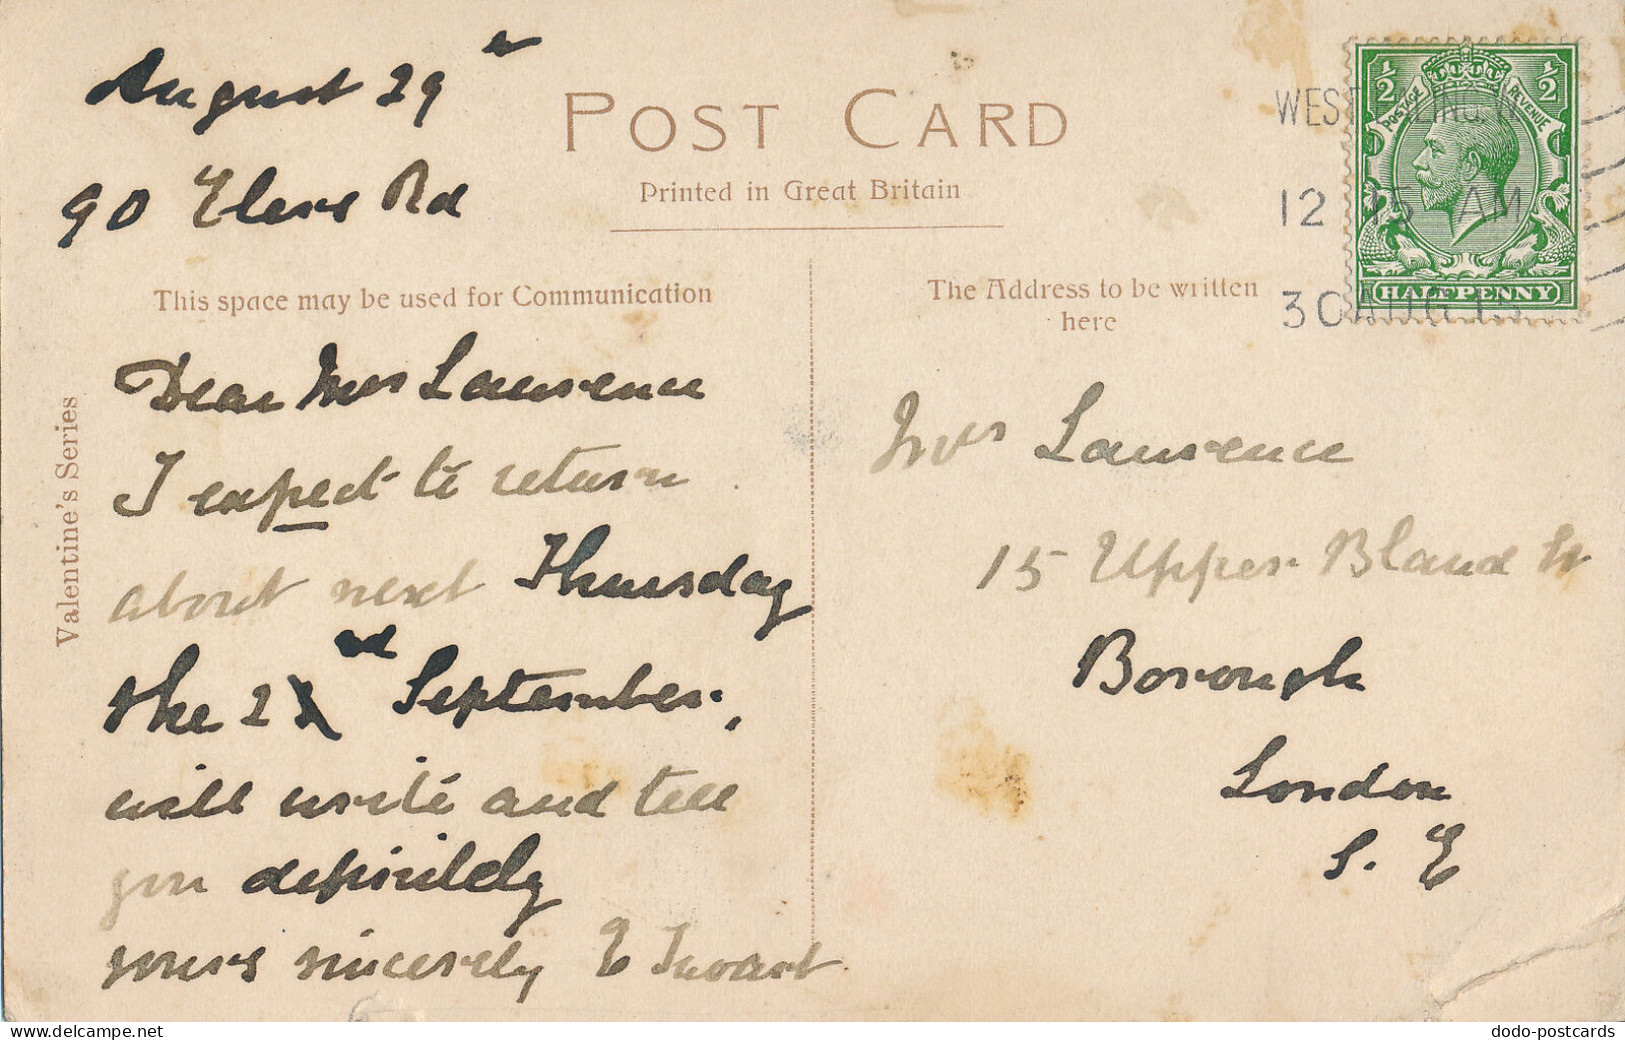 August 29th
90 Elers Rd
POST CARD
Printed in Great Britain
This space may be used for Communication
The Address to be written
here
Valentine's Series
½ ½
POSTAGE REVENUE
HALFPENNY
WEST EALING. W.
12 15 AM
30 AUG 15
Dear Mrs Lawrence
I expect to return
about next Thursday
the 2nd September,
will write and tell
you definitely
yours sincerely E Ewart
Mrs Lawrence
15 Upper Bland St
Borough
London
S. E
dodo-postcards
www.delcampe.net